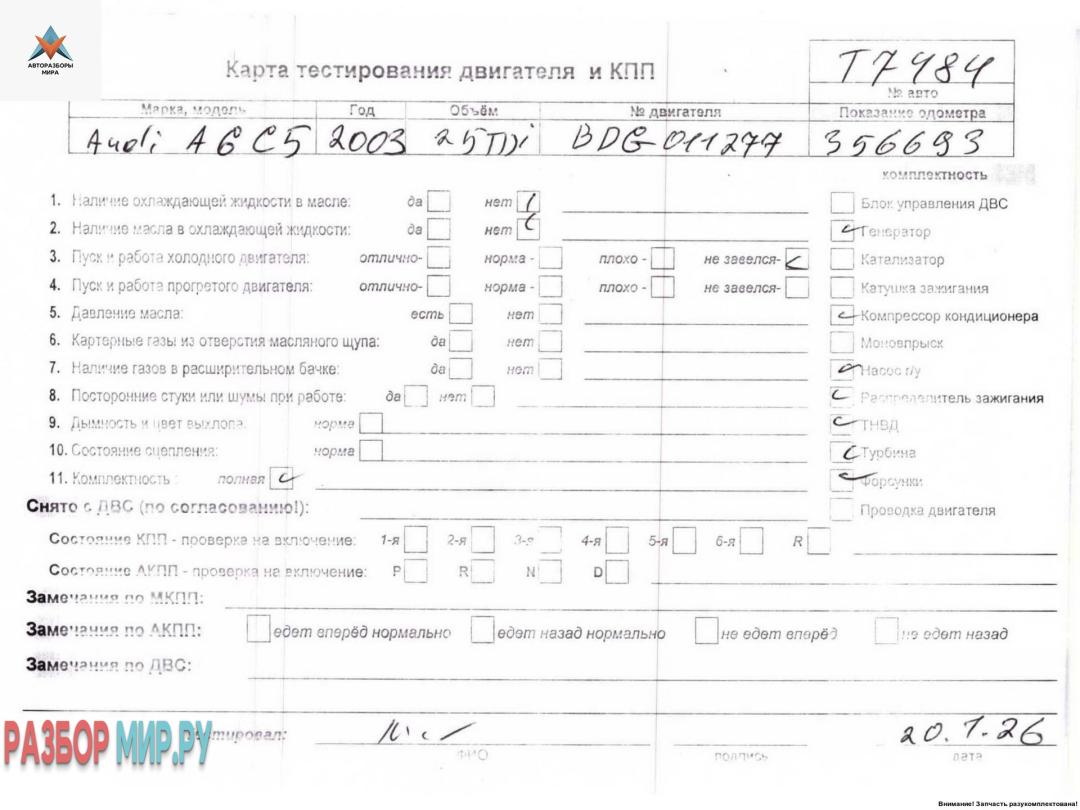 АВТОРАЗБОРЫ
МИРА
Карта тестирования двигателя и КПП
T7484
№ авто
Марка, модель Год Объём № двигателя Показание одометра
Audi A6 C5 2003 25TDi BDG 011277 356693
комплектность
1. Наличие охлаждающей жидкости в масле: да нет Блок управления ДВС
2. Наличие масла в охлаждающей жидкости: да нет Генератор
3. Пуск и работа холодного двигателя: отлично- норма - плохо - не завелся- Катализатор
4. Пуск и работа прогретого двигателя: отлично- норма - плохо - не завелся- Катушка зажигания
5. Давление масла: есть нет Компрессор кондиционера
6. Картерные газы из отверстия масляного щупа: да нет Моновпрыск
7. Наличие газов в расширительном бачке: да нет Насос г/у
8. Посторонние стуки или шумы при работе: да нет Распределитель зажигания
9. Дымность и цвет выхлопа: норма ТНВД
10. Состояние сцепления: норма Турбина
11. Комплектность : полная Форсунки
Снято с ДВС (по согласованию!): Проводка двигателя
Состояние КПП - проверка на включение: 1-я 2-я 3-я 4-я 5-я 6-я R
Состояние АКПП - проверка на включение: P R N D
Замечания по МКПП:
Замечания по АКПП: едет вперёд нормально едет назад нормально не едет вперёд не едет назад
Замечания по ДВС:
РАЗБОРМИР.РУ
тестировал: 20.1.26
ФИО подпись дата
Внимание! Запчасть разукомплектована!